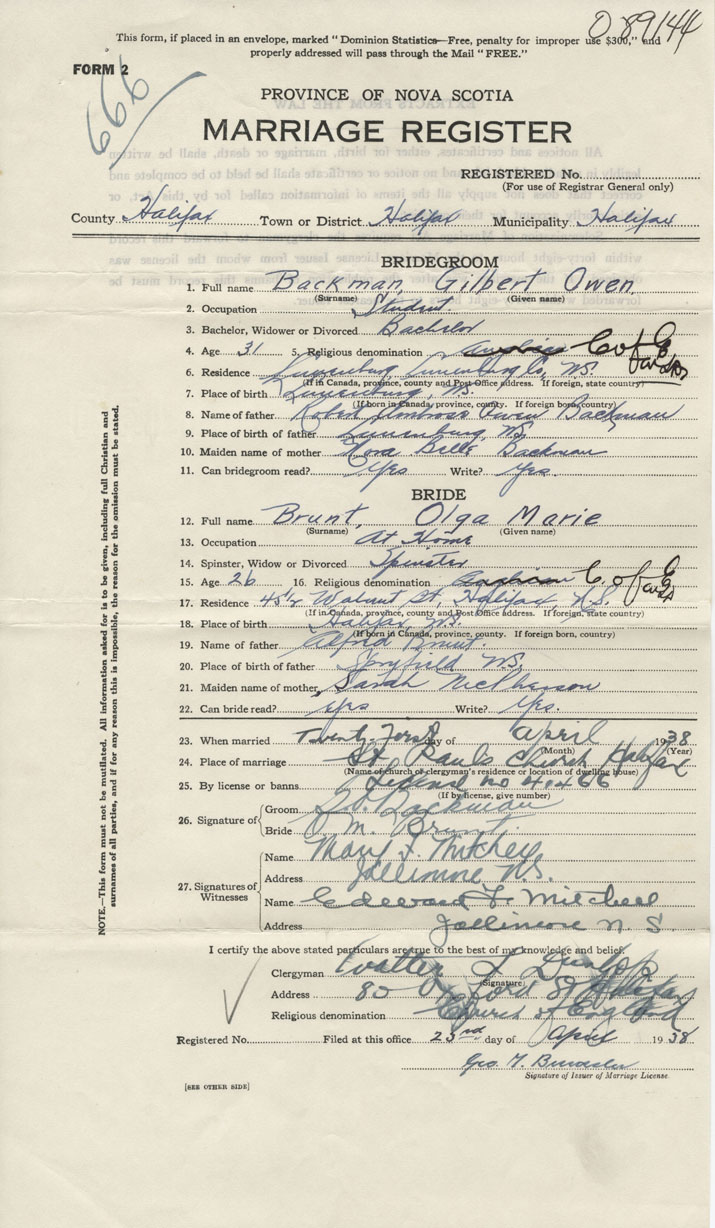 089144
This form, if placed in an envelope, marked "Dominion Statistics—Free, penalty for improper use $300," and
properly addressed will pass through the Mail "FREE."
FORM 2
666
PROVINCE OF NOVA SCOTIA
MARRIAGE REGISTER
REGISTERED No.
(For use of Registrar General only)
County Halifax Town or District Halifax Municipality Halifax
BRIDEGROOM
1. Full name Backman, Gilbert Owen
(Surname) (Given name)
2. Occupation Student
3. Bachelor, Widower or Divorced Bachelor
4. Age 31 5. Religious denomination C of E
6. Residence Lunenburg Lunenburg Co, N.S.
(If in Canada, province, county and Post Office address. If foreign, state country)
7. Place of birth Lunenburg, N.S.
(If born in Canada, province, county. If foreign born, country)
8. Name of father Robert Ambrose Owen Backman
9. Place of birth of father Lunenburg, N.S.
10. Maiden name of mother Belle Backman
11. Can bridegroom read? Yes Write? Yes.
BRIDE
12. Full name Brunt, Olga Marie
(Surname) (Given name)
13. Occupation At Home
14. Spinster, Widow or Divorced Spinster
15. Age 26 16. Religious denomination C. of E
17. Residence Walnut St, Halifax, N.S.
(If in Canada, province, county and Post Office address. If foreign, state country)
18. Place of birth Halifax, N.S.
(If born in Canada, province, county. If foreign born, country)
19. Name of father Alfred Brunt.
20. Place of birth of father Spryfield N.S.
21. Maiden name of mother Sarah McPherson
22. Can bride read? Yes Write? Yes.
23. When married Twenty-first day of April 1938
(Month) (Year)
24. Place of marriage St. Pauls Church Halifax
(Name of church or clergyman's residence or location of dwelling house)
25. By license or banns License no 40466
(If by license, give number)
26. Signature of
Groom G.O. Backman
Bride O. M. Brunt
27. Signatures of Witnesses
Name Mary F. Mitchell
Address Jollimore N.S.
Name Edward F. Mitchell
Address Jollimore N.S.
I certify the above stated particulars are true to the best of my knowledge and belief.
Clergyman Walter J Dunlop
(Signature)
Address 80 Oxford St Halifax
Religious denomination Church of England
Registered No. Filed at this office 23rd day of April 1938
Geo. T.
Signature of Issuer of Marriage License.
[SEE OTHER SIDE]
NOTE.—This form must not be mutilated. All information asked for is to be given, including full Christian and
surnames of all parties, and if for any reason this is impossible, the reason for the omission must be stated.